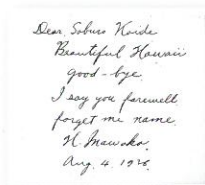 Dear, Saburo Koide
Beautiful Hawaii
good-bye.
I say you farewell
forget me name.
N. Mawaka.
Aug. 4. 1926.